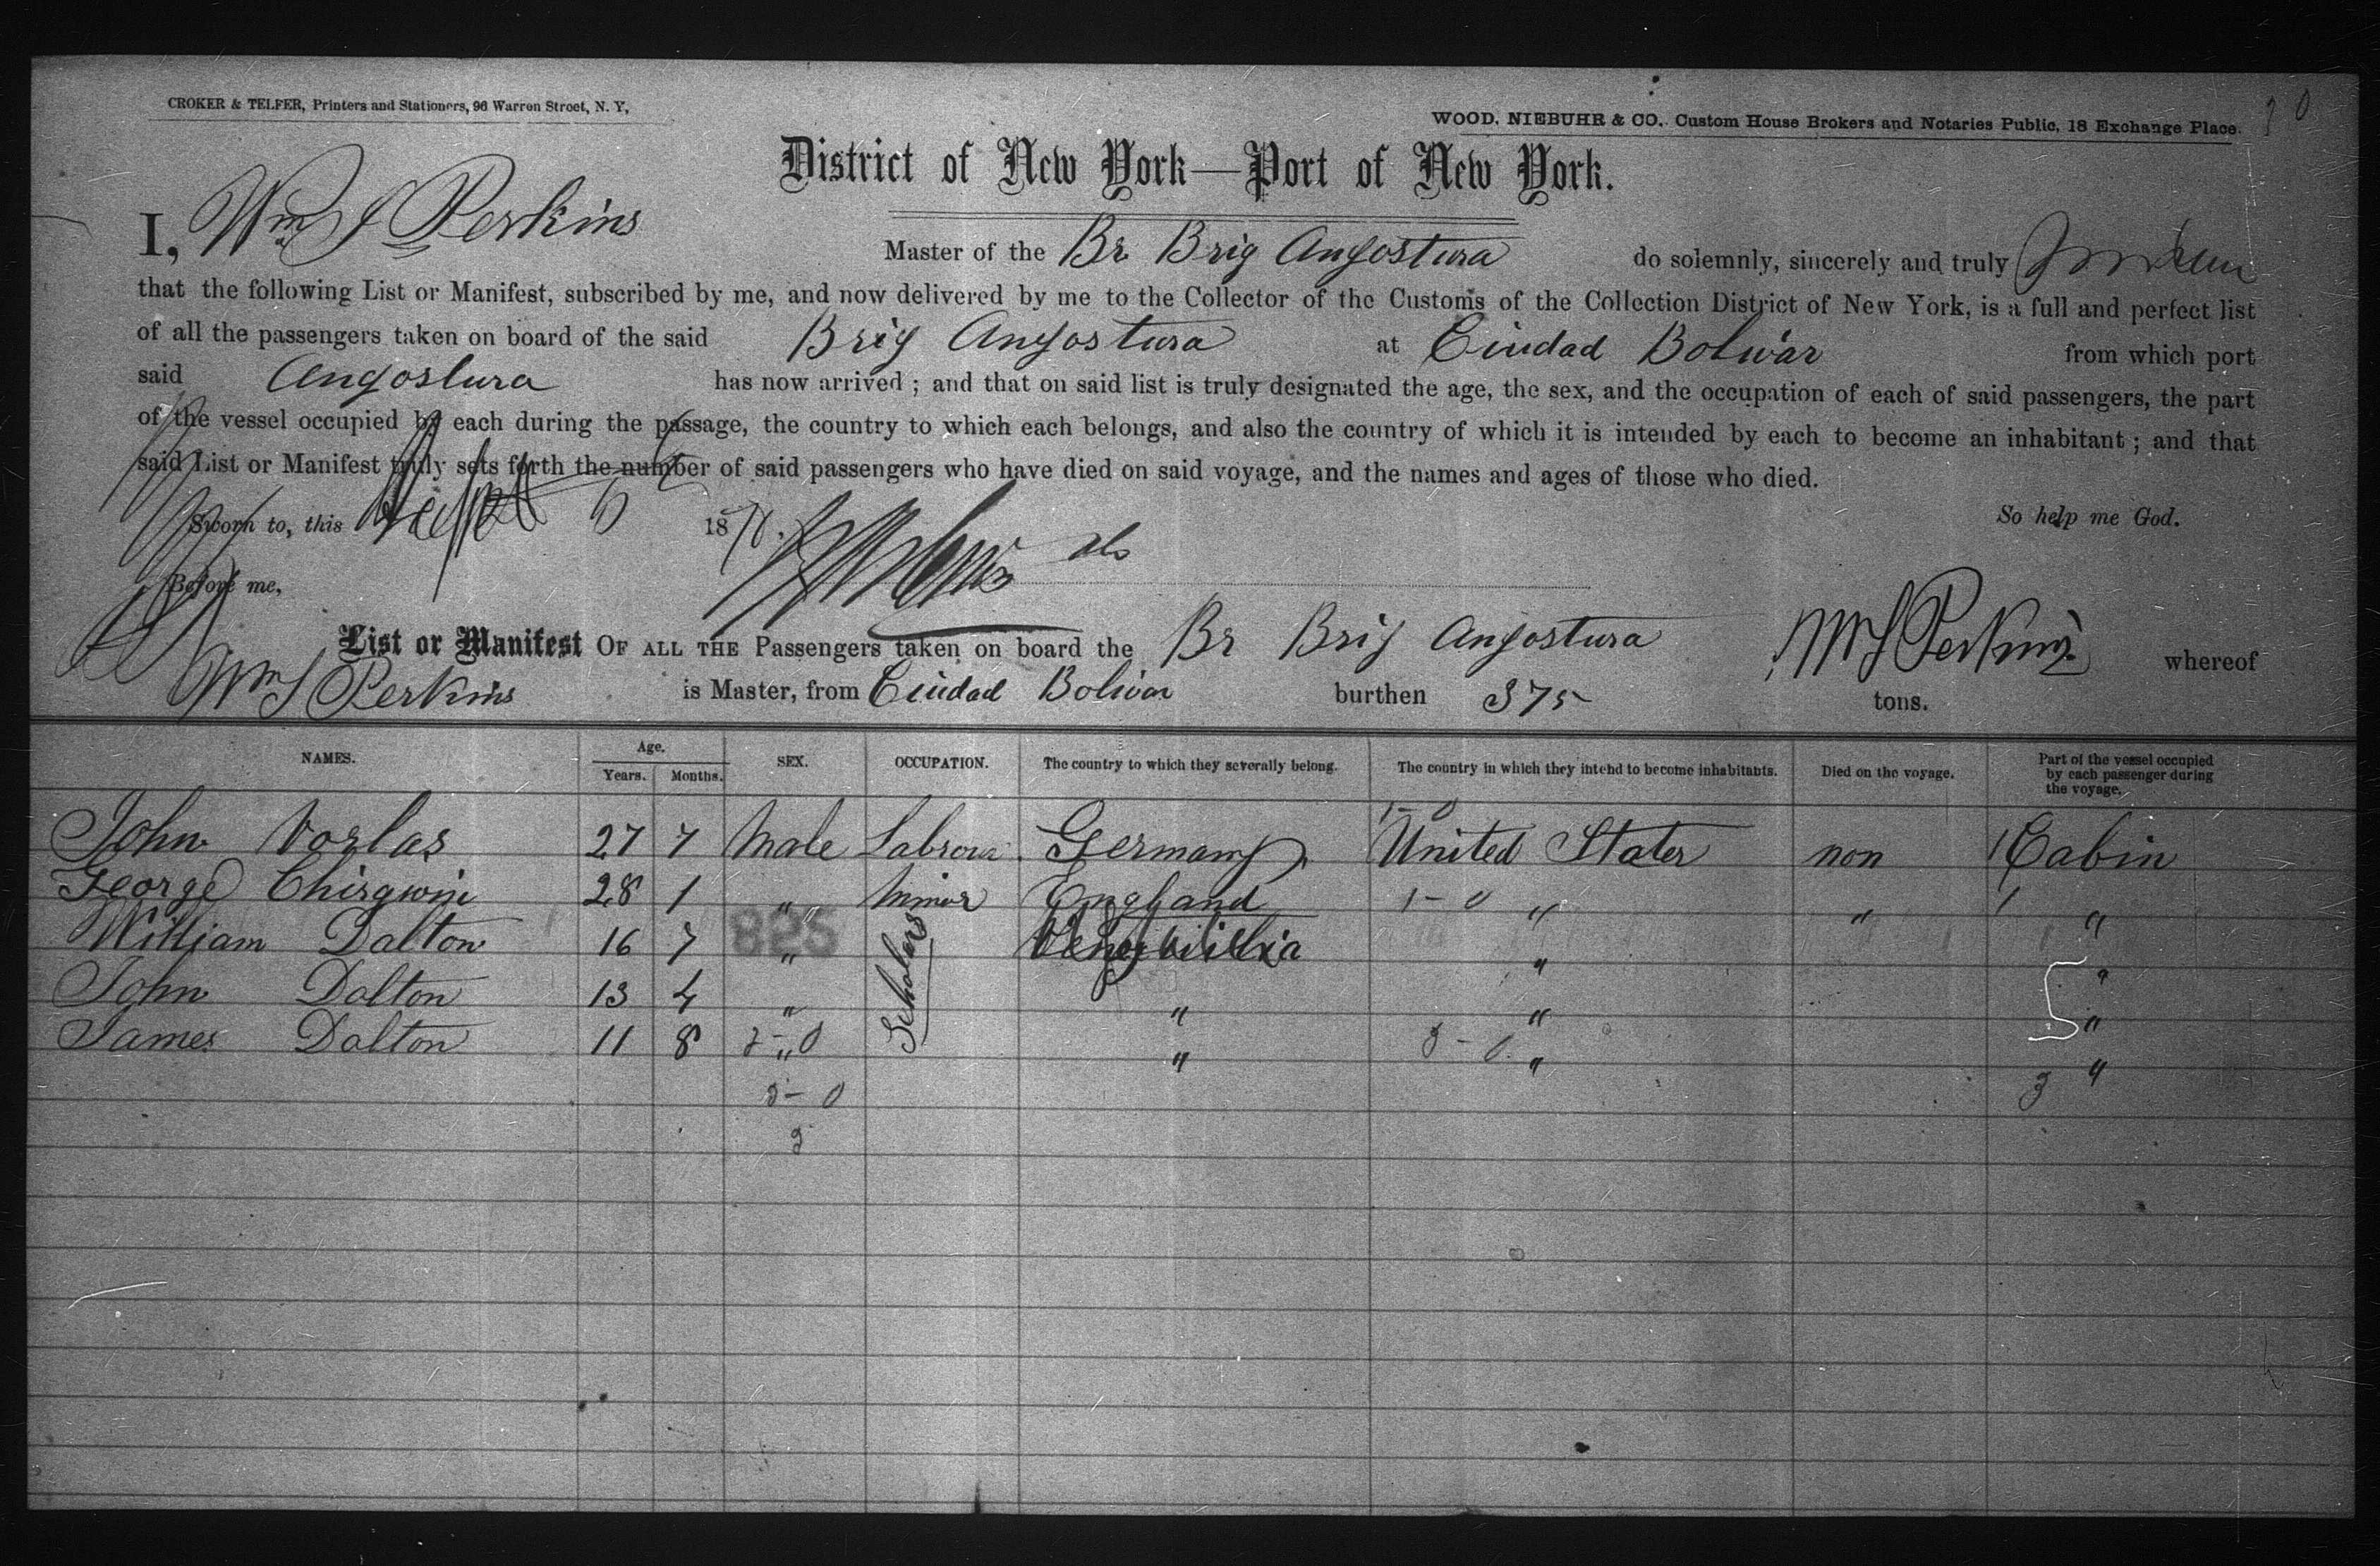 CROKER & TELFER, Printers and Stationers, 96 Warren Street, N. Y,
WOOD, NIEBUHR & CO. Custom House Brokers and Notaries Public, 18 Exchange Place.
District of New York—Port of New York.
I, Wm S Perkins Master of the Br Brig Angostura do solemnly, sincerely and truly
that the following List or Manifest, subscribed by me, and now delivered by me to the Collector of the Customs of the Collection District of New York, is a full and perfect list
of all the passengers taken on board of the said Brig Angostura at Ciudad Bolivar from which port
said Angostura has now arrived ; and that on said list is truly designated the age, the sex, and the occupation of each of said passengers, the part
of the vessel occupied by each during the passage, the country to which each belongs, and also the country of which it is intended by each to become an inhabitant ; and that
said List or Manifest truly sets forth the number of said passengers who have died on said voyage, and the names and ages of those who died.
Sworn to, this 1878. So help me God.
Before me,
List or Manifest OF ALL THE Passengers taken on board the Br Brig Angostura Wm S Perkins whereof
Wm S Perkins is Master, from Ciudad Bolivar burthen 375 tons.
NAMES. Age. Years. Months. SEX. OCCUPATION. The country to which they severally belong. The country in which they intend to become inhabitants. Died on the voyage. Part of the vessel occupied by each passenger during the voyage.
1-0
John Vorlas 27 7 Male Germany United States non 1 Cabin
George Chirgwin 28 1 " Minor England 1-0 " " 1 "
William Dalton 16 7 825 " Scholars "
John Dalton 13 4 " " " "
James Dalton 11 8 " " 3-0 " "
3-0 3
3